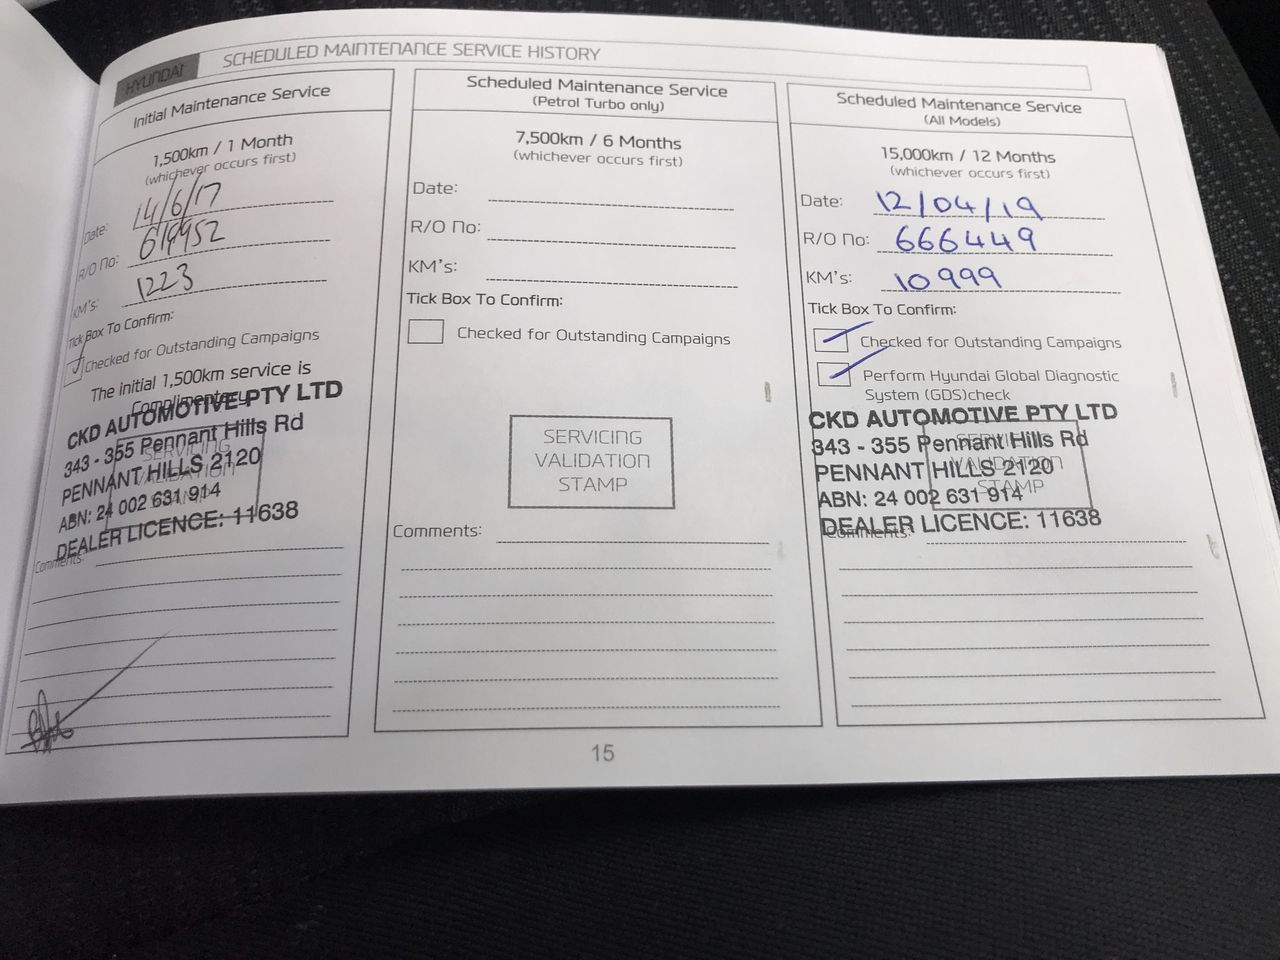 HYUNDAI
SCHEDULED MAINTENANCE SERVICE HISTORY
Initial Maintenance Service
1,500km / 1 Month
(whichever occurs first)
Date: 14/6/17
R/O No: 619952
KM's: 1223
Tick Box To Confirm:
Checked for Outstanding Campaigns
The initial 1,500km service is
Complimentary
CKD AUTOMOTIVE PTY LTD
343 - 355 Pennant Hills Rd
PENNANT HILLS 2120
ABN: 24 002 631 914
DEALER LICENCE: 11638
SERVICING
VALIDATION
STAMP
Comments:
Scheduled Maintenance Service
(Petrol Turbo only)
7,500km / 6 Months
(whichever occurs first)
Date:
R/O No:
KM's:
Tick Box To Confirm:
Checked for Outstanding Campaigns
SERVICING
VALIDATION
STAMP
Comments:
Scheduled Maintenance Service
(All Models)
15,000km / 12 Months
(whichever occurs first)
Date: 12/04/19
R/O No: 666449
KM's: 10999
Tick Box To Confirm:
Checked for Outstanding Campaigns
Perform Hyundai Global Diagnostic
System (GDS)check
CKD AUTOMOTIVE PTY LTD
343 - 355 Pennant Hills Rd
PENNANT HILLS 2120
ABN: 24 002 631 914
DEALER LICENCE: 11638
SERVICING
VALIDATION
STAMP
Comments:
15